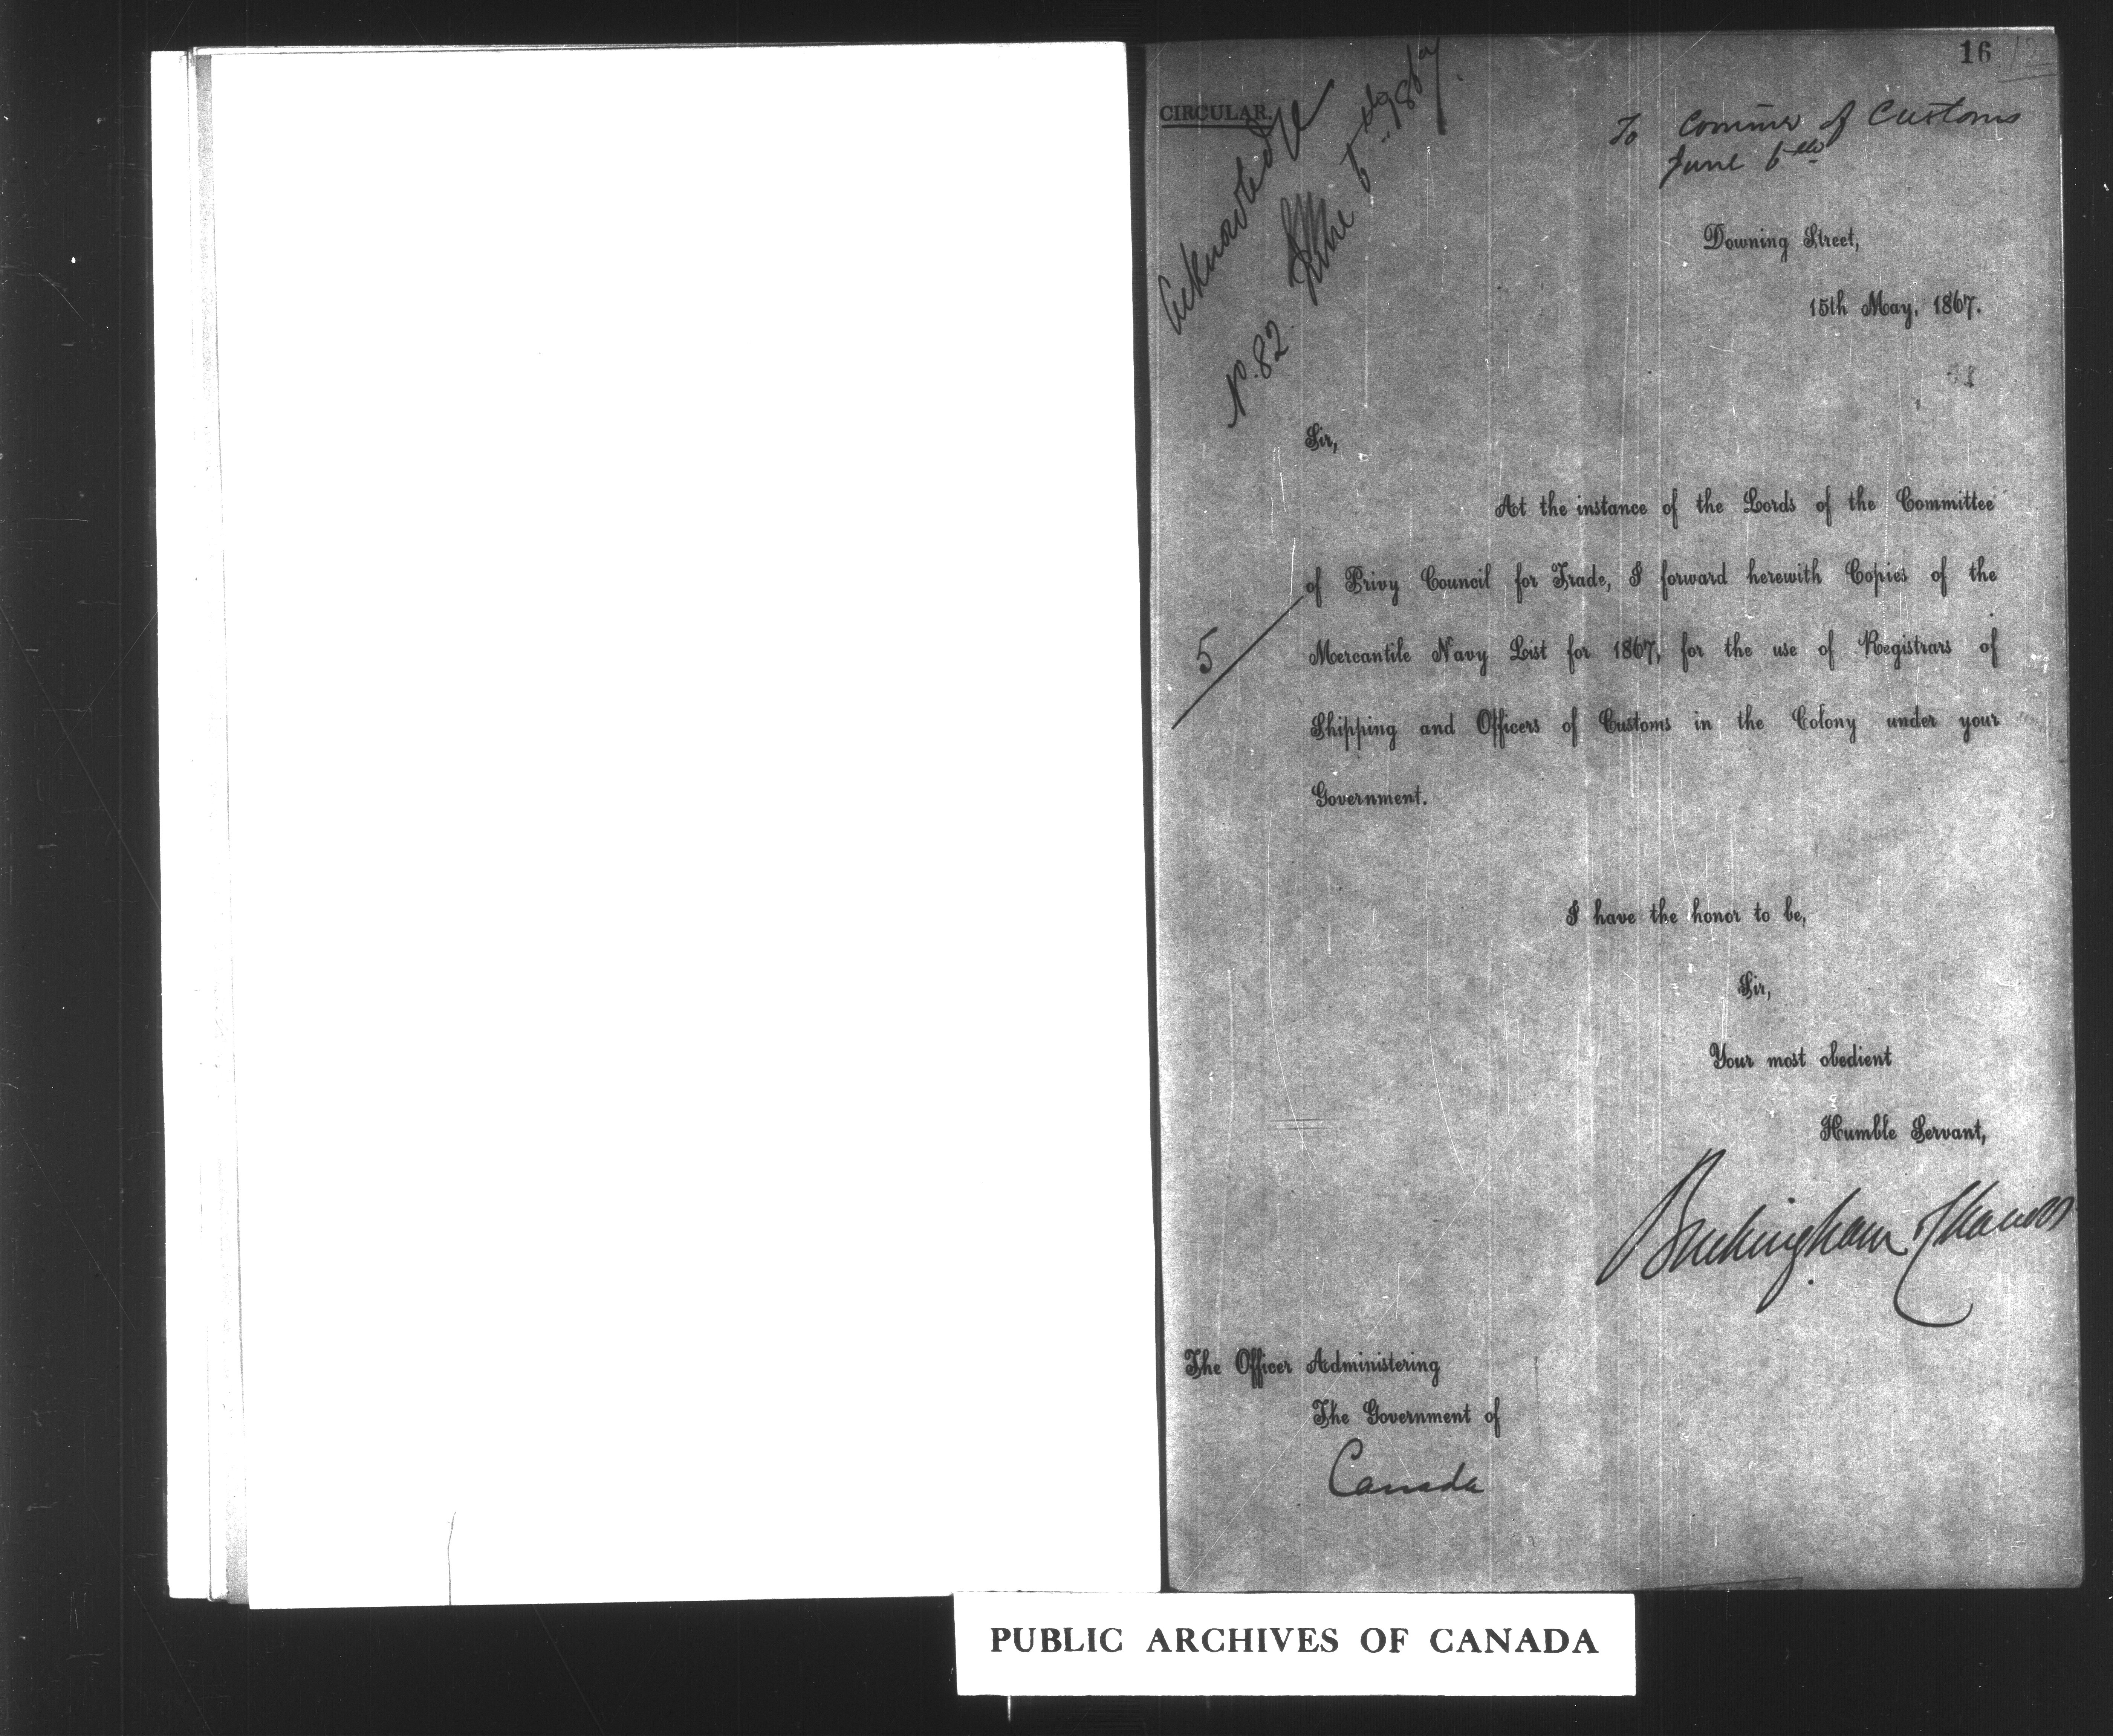 16
CIRCULAR.
Acknowledge
No. 82 June 6th 1867.
To Commr of Customs
June 6th
Downing Street,
15th May, 1867.
Sir,
At the instance of the Lords of the Committee
of Privy Council for Trade, I forward herewith Copies of the
5
Mercantile Navy List for 1867, for the use of Registrars of
Shipping and Officers of Customs in the Colony under your
Government.
I have the honor to be,
Sir,
Your most obedient
Humble Servant,
Buckingham & Chandos
The Officer Administering
The Government of
Canada
PUBLIC ARCHIVES OF CANADA